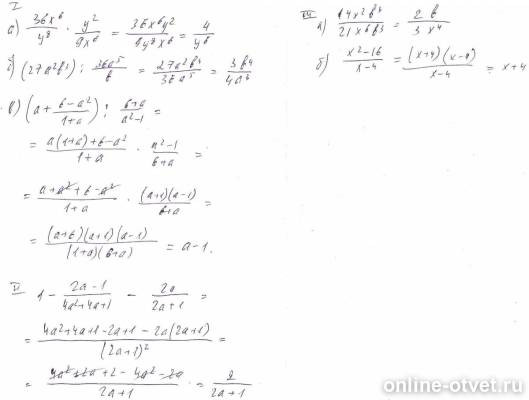 I
а) 36x⁶/y⁸ · y²/9x⁶ = 36x⁶y²/9y⁸x⁶ = 4/y⁶
б) (27a²b³) : 36a⁵/b = 27a²b⁴/36a⁵ = 3b⁴/4a³
в) (a + (b-a²)/(1+a)) : (b+a)/(a²-1) =
= (a(1+a)+b-a²)/(1+a) · (a²-1)/(b+a) =
= (a+a²+b-a²)/(1+a) · ((a+1)(a-1))/(b+a) =
= ((a+b)(a+1)(a-1))/((1+a)(b+a)) = a-1.
II
1 - (2a-1)/(4a²+4a+1) - 2a/(2a+1) =
= (4a²+4a+1-2a+1-2a(2a+1))/(2a+1)² =
= (4a²+2a+2-4a²-2a)/(2a+1) = 2/(2a+1)
а) 14x²b⁴/21x⁶b³ = 2b/3x⁴
б) (x²-16)/(x-4) = ((x+4)(x-4))/(x-4) = x+4
online-otvet.ru